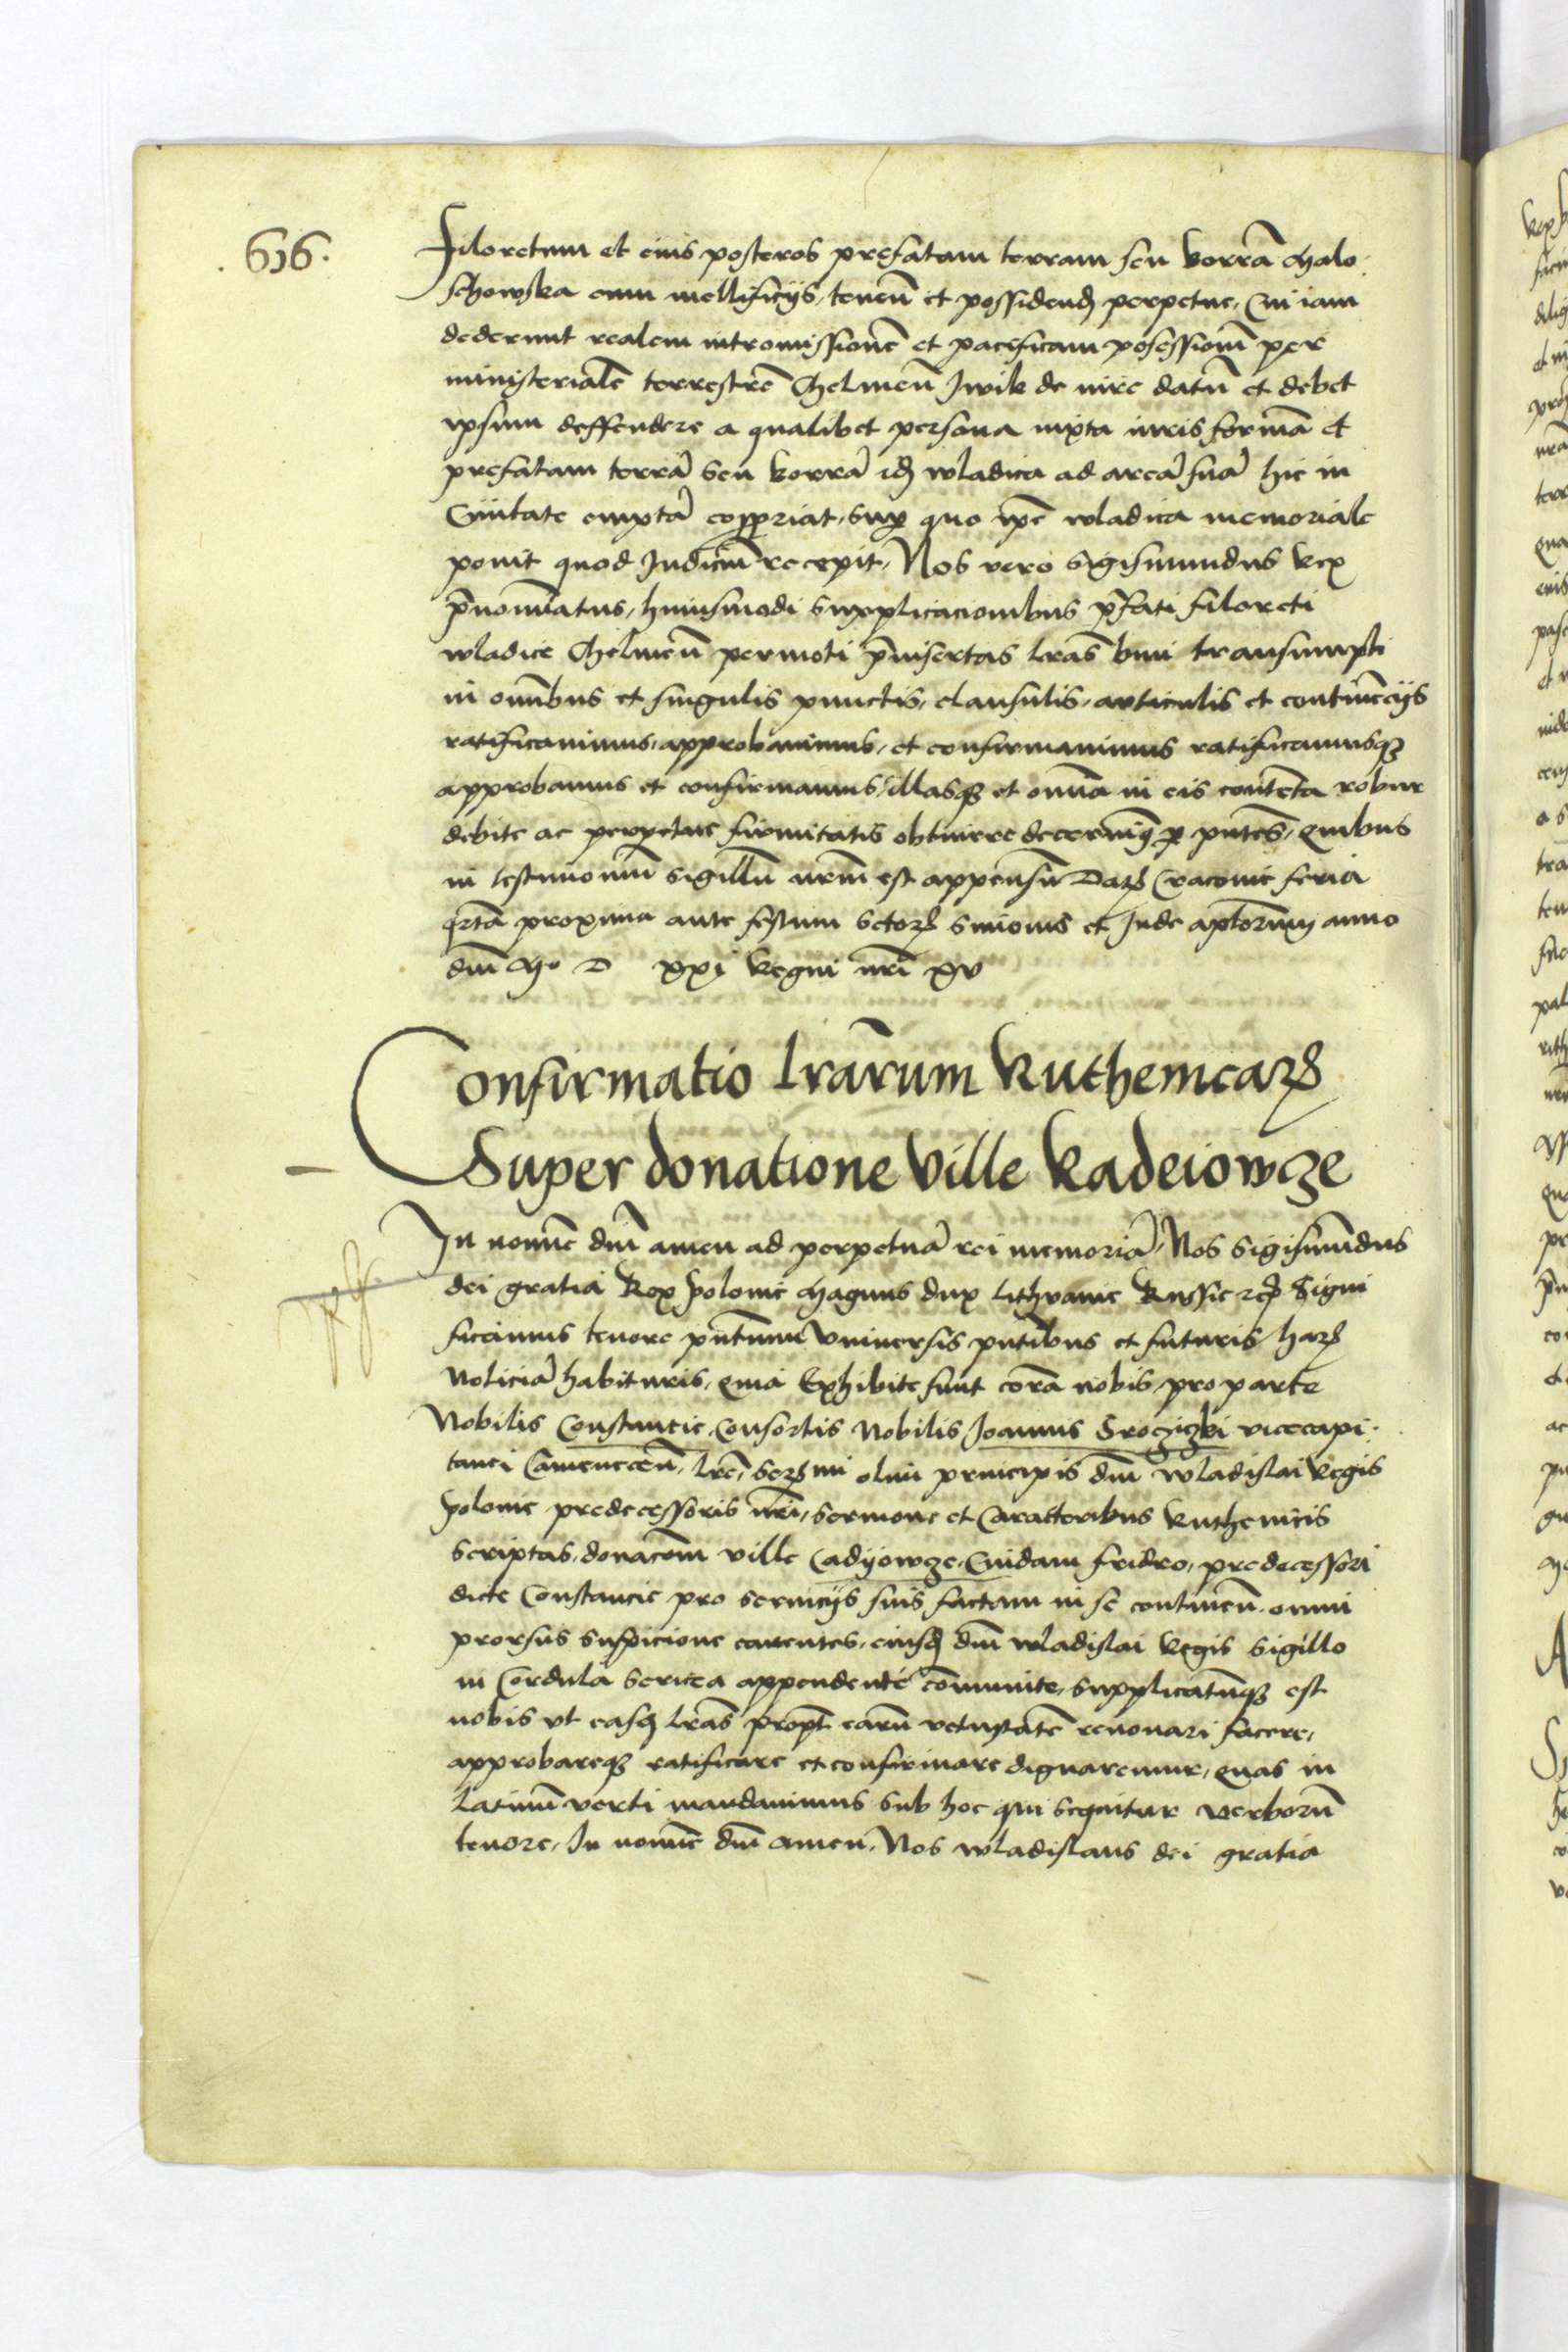 .636.
Filoretum et eius posteros prefatam terram seu borrā Malo
schowska cum mellificijs, tenen̄ et possidend̨ perpetue, Cui iam
dederunt realem intromissionē et pacificam posessionē per
ministerialē terrestrē Chelmen̄ Iwik de iure datū et debet
ipsum deffendere a qualibet persona iuxta iuris formā et
prefatam terrā seu borrā id̨ wladica ad areā suā hic in
Ciuitate emptā coppriat, sup quo ip̄e wladica memoriale
ponit quod Iudiciū recepit, Nos vero Sigismundus Rex
p̄nominatus, huiusmodi supplicacionibus p̄fati filoreti
wladice Chelmen̄ permoti p̄insertas l̄ras hui transumpti
in om̄ibus et singulis punctis, clausulis, articulis et continēcijs
ratificauimus, approbauimus, et confirmauimus ratificamusq̨
approbamus et confirmamus, illasq̨ et omnia in eis contēta robur
debite ac perpetue firmitatis obtinere decernim̨ p pn̄tes, quibus
in testimoniū sigillū nrm̄ est appensū Datꝝ Cracouie feria
qrtā proxima ante festum sctoꝝ Simonis et Iude ap̄lorum anno
dn̄i Mo D xxi Regni nr̄i xv
Confirmatio l̄rarum Ruthenicaꝝ
Super donatione Ville Kadeiowcze
In nomīe dn̄i amen ad perpetuā rei memoriā, Nos Sigismūdus
dei gratia Rex Polonie Magnus dux Lithvanie Russie zc̨ Signi
ficamus tenore pn̄tium Vniuersis pn̄tibus et futuris haꝝ
Noticiā habituris, quia Exhibite sunt corā nobis, pro parte
Nobilis Constancie, Consortis Nobilis Joannis Sroczizki vicecapi
tanei Camenecen̄, l̄re, Seꝝmi olim principis dn̄i Wladislai Regis
Polonie predecessoris nr̄i, sermone et Caracteribus Ruthenicis
scriptas, donacōem ville Cadijowcze, Cuidam fridro, predecessori
dicte Constancie pro seruicijs suis factam in se continen̄, omni
prorsus suspicione carentes, eiusd̨ dn̄i Wladislai Regis Sigillo
in Cordula sericea appendente cōmunite, supplicatūq̨ est
nobis vt easd̨ l̄ras propt̄ earū vetustatē renouari facere,
approbareq̨ ratificare et confirmare dignaremur, quas in
Latinū verti mandauimus sub hoc qui sequitur verborū
tenore, In nomīe dn̄i amen, Nos Wladislaus dei gratia